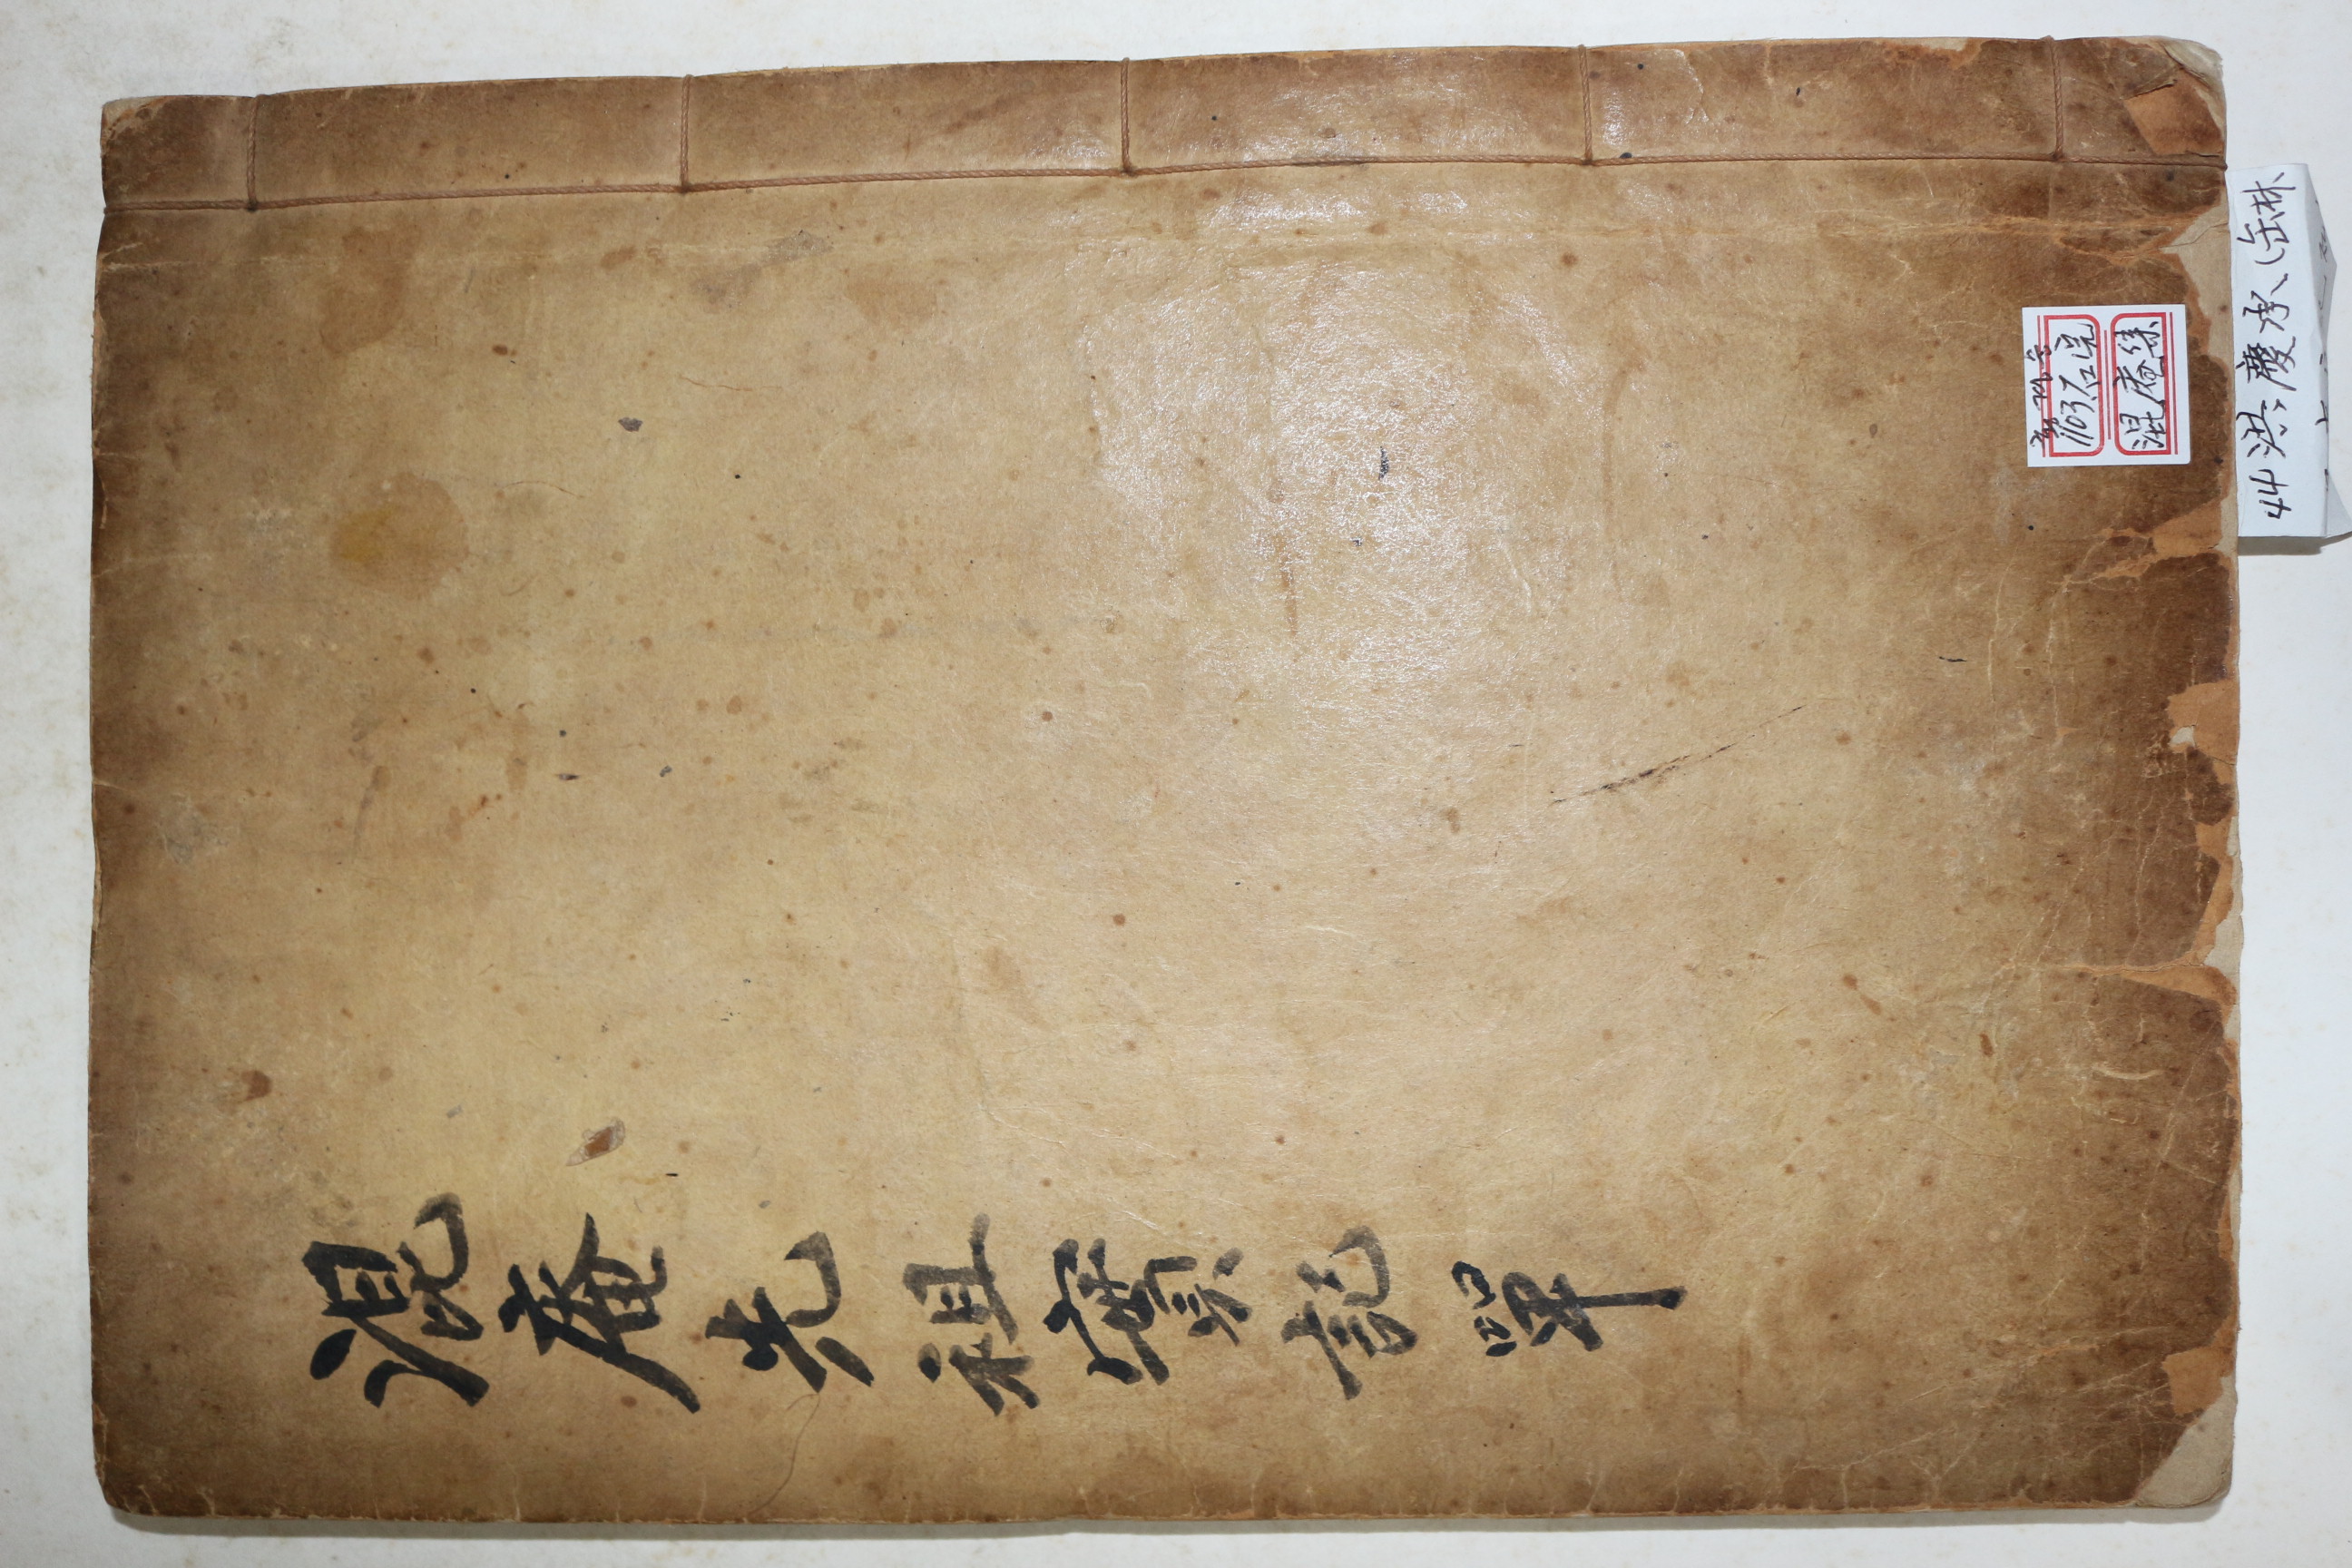 混庵先祖實記 單
홍경승
1103石完
混庵集
44洪慶承(缶林